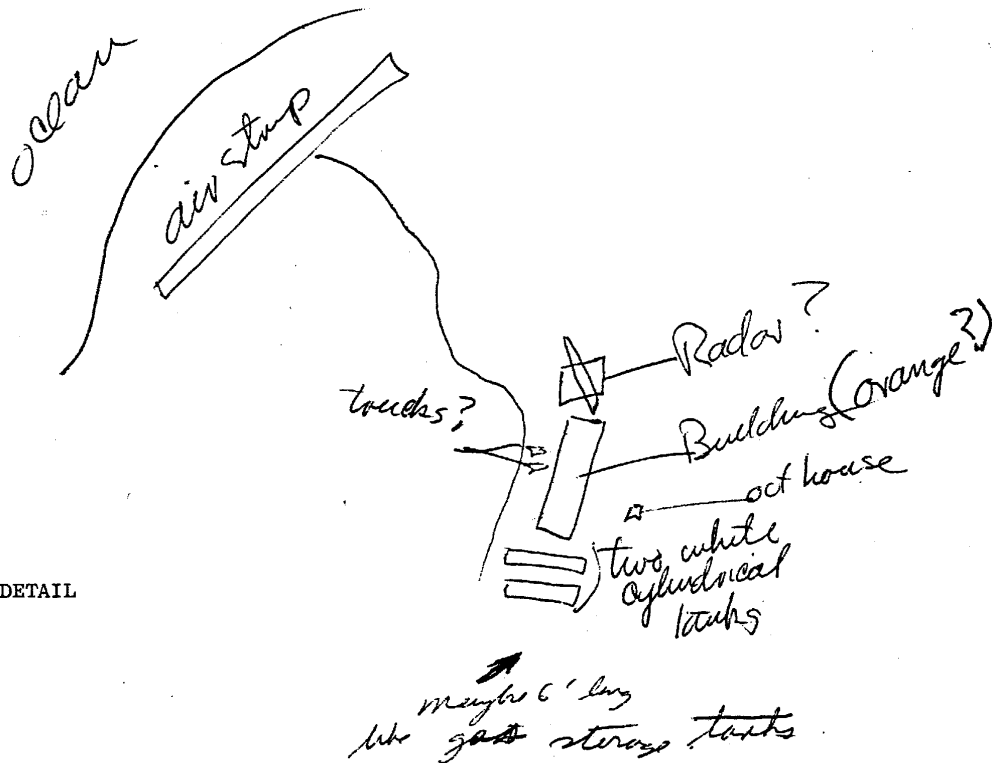 ocean
air strip
Radar?
trucks?
Building (orange?)
out house
two white
cylindrical
tanks
DETAIL
maybe 6' long
like gas storage tanks